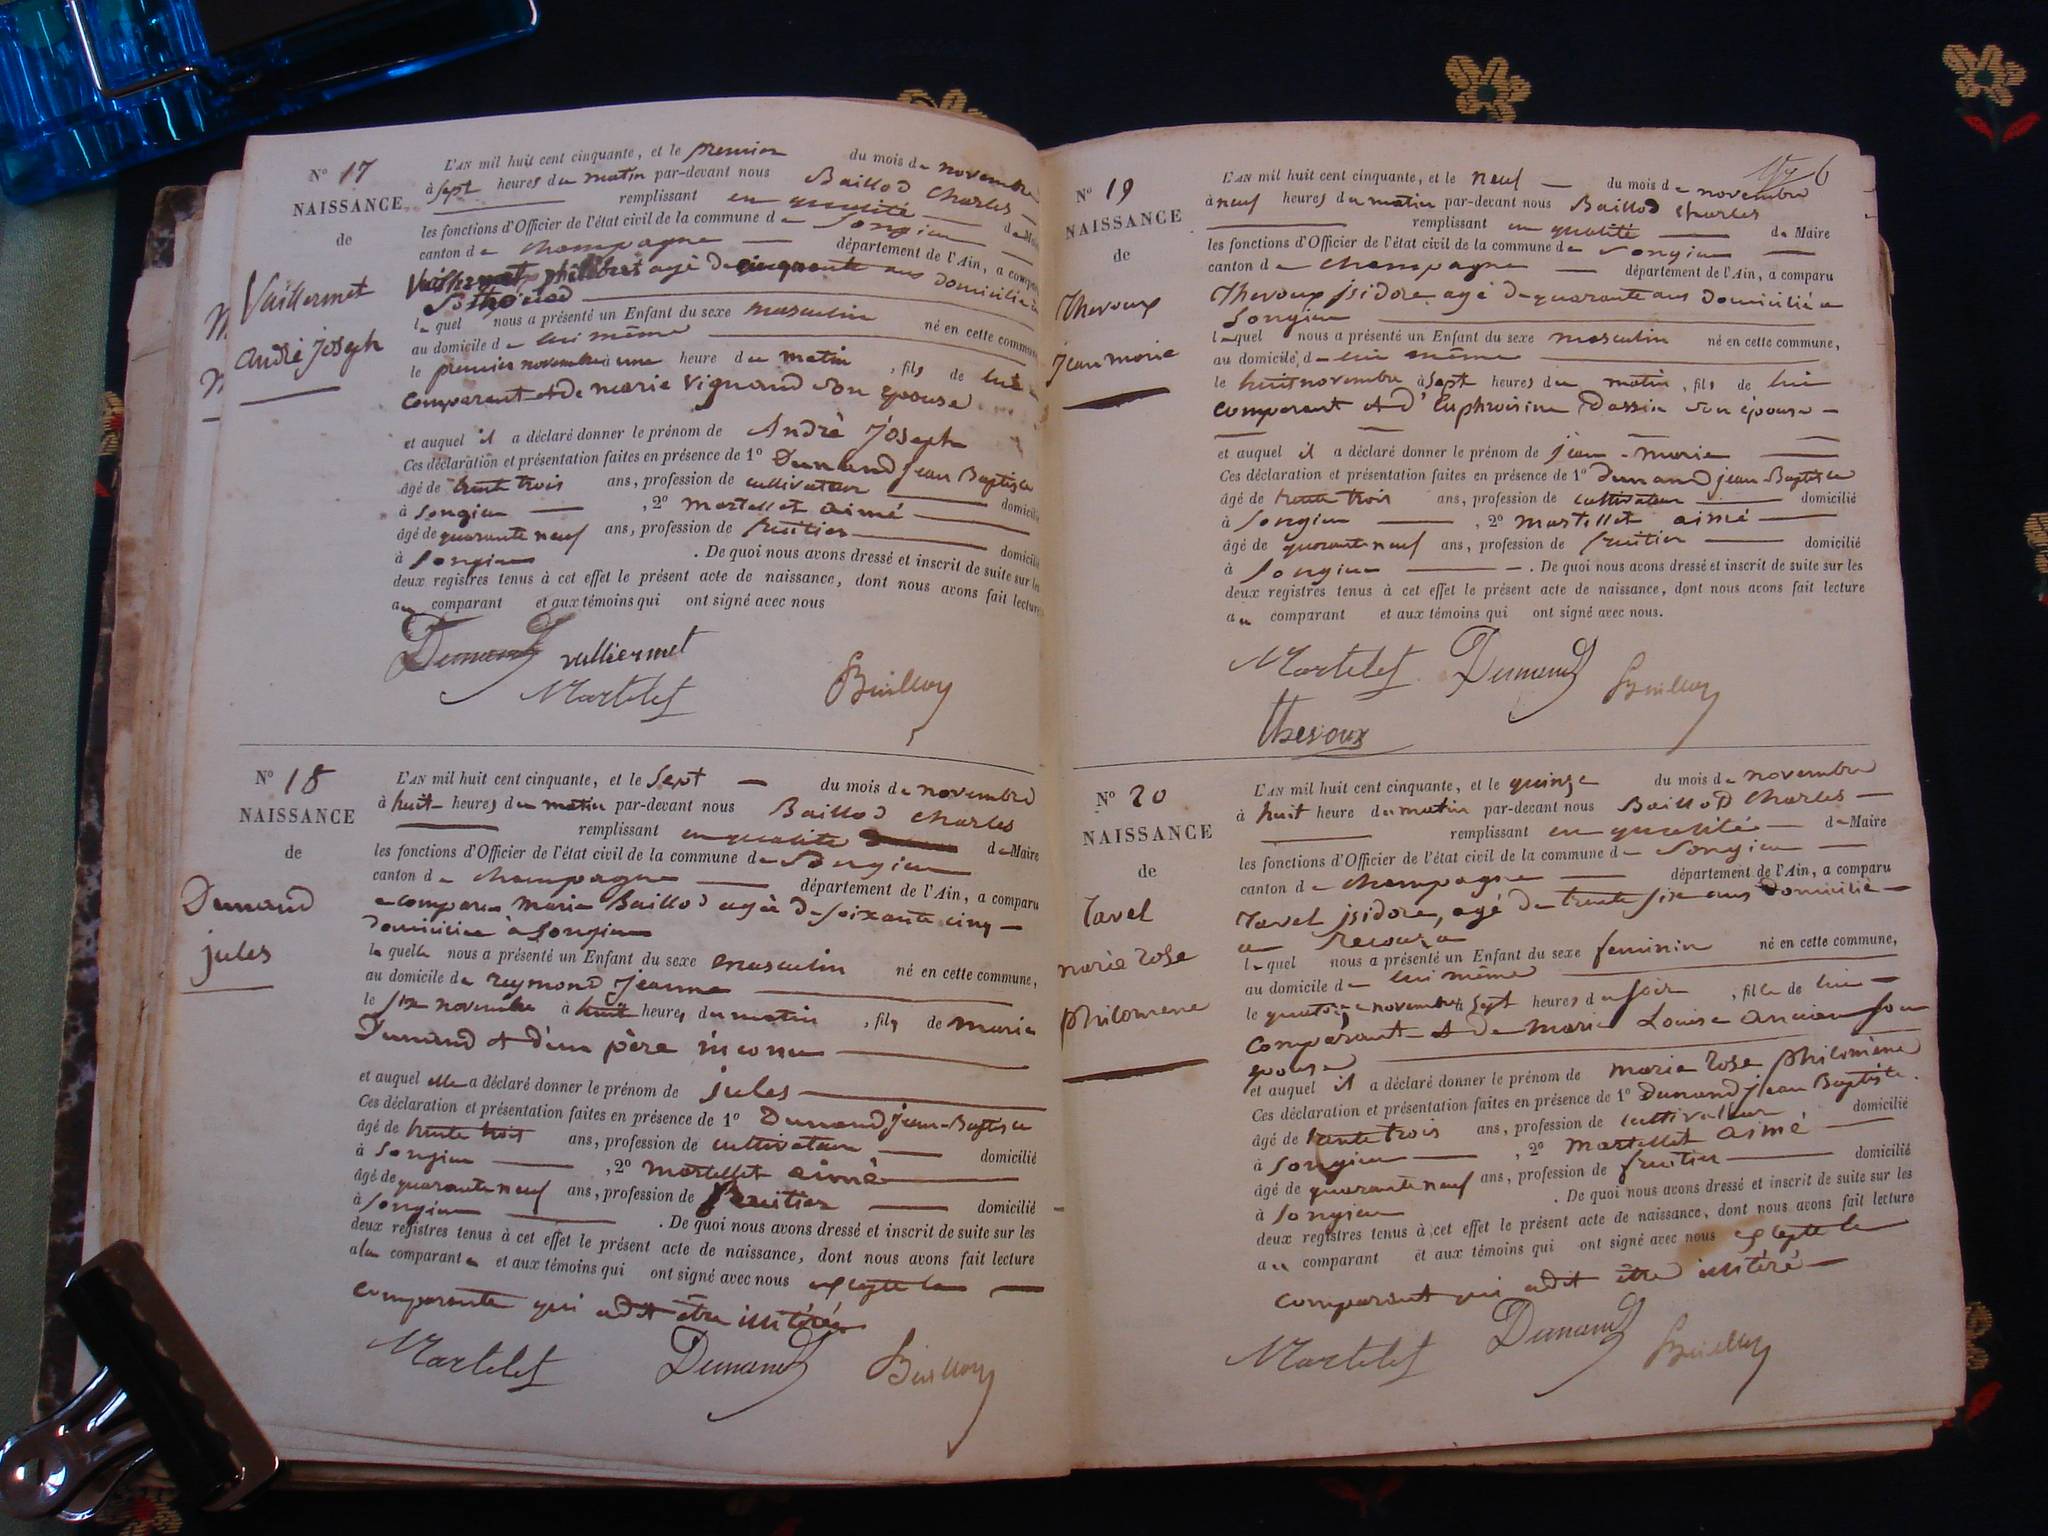 N° 17
NAISSANCE
de
Vuillermet
André Joseph
L'AN mil huit cent cinquante, et le premier du mois de novembre
à sept heures du matin par-devant nous Baillod Charles
remplissant en qualité de Maire
les fonctions d'Officier de l'état civil de la commune de Songieu
canton de Champagne département de l'Ain, a comparu
philibert agé de cinquante ans domicilié à
lequel nous a présenté un Enfant du sexe masculin né en cette commune
au domicile de lui même
le premier novembre à une heure du matin, fils de lui
comparant et de marie Vignand son épouse
et auquel il a déclaré donner le prénom de André Joseph
Ces déclaration et présentation faites en présence de 1° Dunand jean Baptiste
âgé de trente trois ans, profession de cultivateur domicilié
à Songieu, 2° martellet aimé
âgé de quarante neuf ans, profession de fruitier domicilié
à Songieu. De quoi nous avons dressé et inscrit de suite sur les
deux registres tenus à cet effet le présent acte de naissance, dont nous avons fait lecture
au comparant et aux témoins qui ont signé avec nous
Dunand vulliermet
Martelet Baillod
N° 18
NAISSANCE
de
Dunand
jules
L'AN mil huit cent cinquante, et le sept du mois de novembre
à huit heures du matin par-devant nous Baillod Charles
remplissant en qualité de Maire
les fonctions d'Officier de l'état civil de la commune de Songieu
canton de Champagne département de l'Ain, a comparu
a comparu marie Baillod agée de soixante cinq
domiciliée à Songieu
laquelle nous a présenté un Enfant du sexe masculin né en cette commune,
au domicile de reymond jeanne
le six novembre à huit heures du matin, fils de marie
Dunand et d'un père inconu
et auquel elle a déclaré donner le prénom de jules
Ces déclaration et présentation faites en présence de 1° Dunand jean-Baptiste
âgé de trente trois ans, profession de cultivateur domicilié
à Songieu, 2° martellet aimé
âgé de quarante neuf ans, profession de fruitier domicilié
à Songieu. De quoi nous avons dressé et inscrit de suite sur les
deux registres tenus à cet effet le présent acte de naissance, dont nous avons fait lecture
a la comparante et aux témoins qui ont signé avec nous excepte la
comparante qui a dit être illitérée
Martelet Dunand Baillod
6
N° 19
NAISSANCE
de
Thevoux
Jean marie
L'AN mil huit cent cinquante, et le neuf du mois de novembre
à neuf heures du matin par-devant nous Baillod Charles
remplissant en qualité de Maire
les fonctions d'Officier de l'état civil de la commune de Songieu
canton de Champagne département de l'Ain, a comparu
Thevoux jsidore agé de quarante ans domicilié a
Songieu
lequel nous a présenté un Enfant du sexe masculin né en cette commune,
au domicile de lui même
le huit novembre à sept heures du matin, fils de lui
comparant et d'Euphroisine Dassin son épouse
et auquel il a déclaré donner le prénom de jean-marie
Ces déclaration et présentation faites en présence de 1° Dunand jean-Baptiste
âgé de trente trois ans, profession de cultivateur domicilié
à Songieu, 2° martellet aimé
âgé de quarante neuf ans, profession de fruitier domicilié
à Songieu. De quoi nous avons dressé et inscrit de suite sur les
deux registres tenus à cet effet le présent acte de naissance, dont nous avons fait lecture
au comparant et aux témoins qui ont signé avec nous.
Martelet Dunand Baillod
thevoux
N° 20
NAISSANCE
de
Tavel
marie rose
philomene
L'AN mil huit cent cinquante, et le quinze du mois de novembre
à huit heure du matin par-devant nous Baillod Charles
remplissant en qualité de Maire
les fonctions d'Officier de l'état civil de la commune de Songieu
canton de Champagne département de l'Ain, a comparu
Tavel jsidore, agé de trente six ans domicilié
a
lequel nous a présenté un Enfant du sexe feminin né en cette commune,
au domicile de lui même
le quatorze novembre à sept heures du soir, fille de lui
comparant et de marie Louise ancian son
épouse
et auquel il a déclaré donner le prénom de marie rose philomène
Ces déclaration et présentation faites en présence de 1° Dunand jean Baptiste
âgé de trente trois ans, profession de cultivateur domicilié
à Songieu, 2° martellet aimé
âgé de quarante neuf ans, profession de fruitier domicilié
à Songieu. De quoi nous avons dressé et inscrit de suite sur les
deux registres tenus à cet effet le présent acte de naissance, dont nous avons fait lecture
au comparant et aux témoins qui ont signé avec nous excepte le
comparant qui a dit être illitéré
Martelet Dunand Baillod